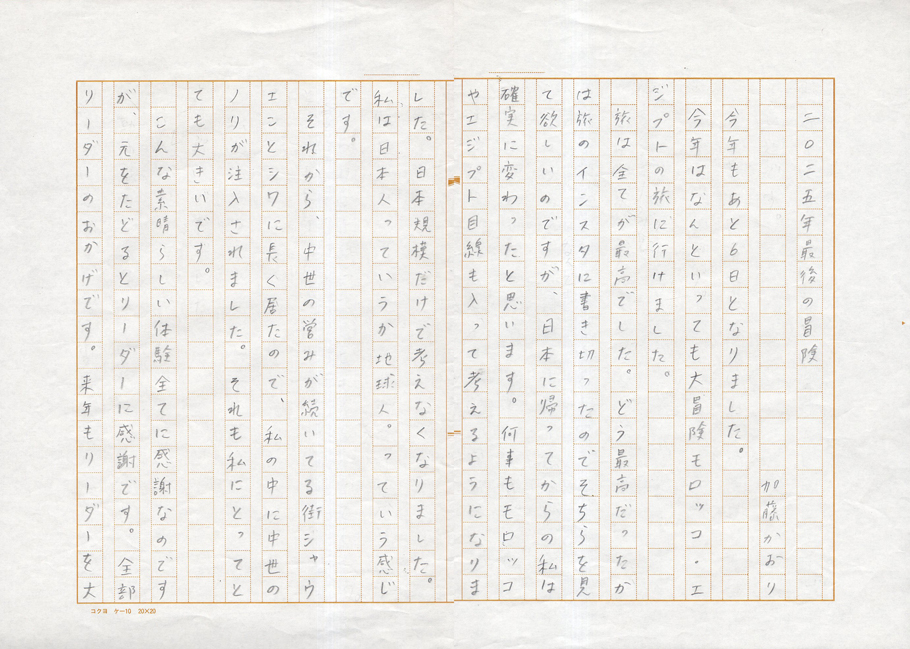 二〇二五年最後の冒険
加藤かおり
今年もあと6日となりました。
今年はなんといっても大冒険モロッコ・エ
ジプトの旅に行けました。
旅は全てが最高でした。どう最高だったか
は旅のインスタに書き切ったのでそちらを見
て欲しいのですが、日本に帰ってからの私は
確実に変わったと思います。何事もモロッコ
やエジプト目線も入って考えるようになりま
した。日本規模だけで考えなくなりました。
私は日本人っていうか地球人。っていう感じ
です。
それから、中世の営みが続いてる街シャウ
エンとシワに長く居たので、私の中に中世の
ノリが注入されました。それも私にとってと
ても大きいです。
こんな素晴らしい体験全てに感謝なのです
が、元をたどるとリーダーに感謝です。全部
リーダーのおかげです。来年もリーダーを大
コクヨ ケー10 20×20